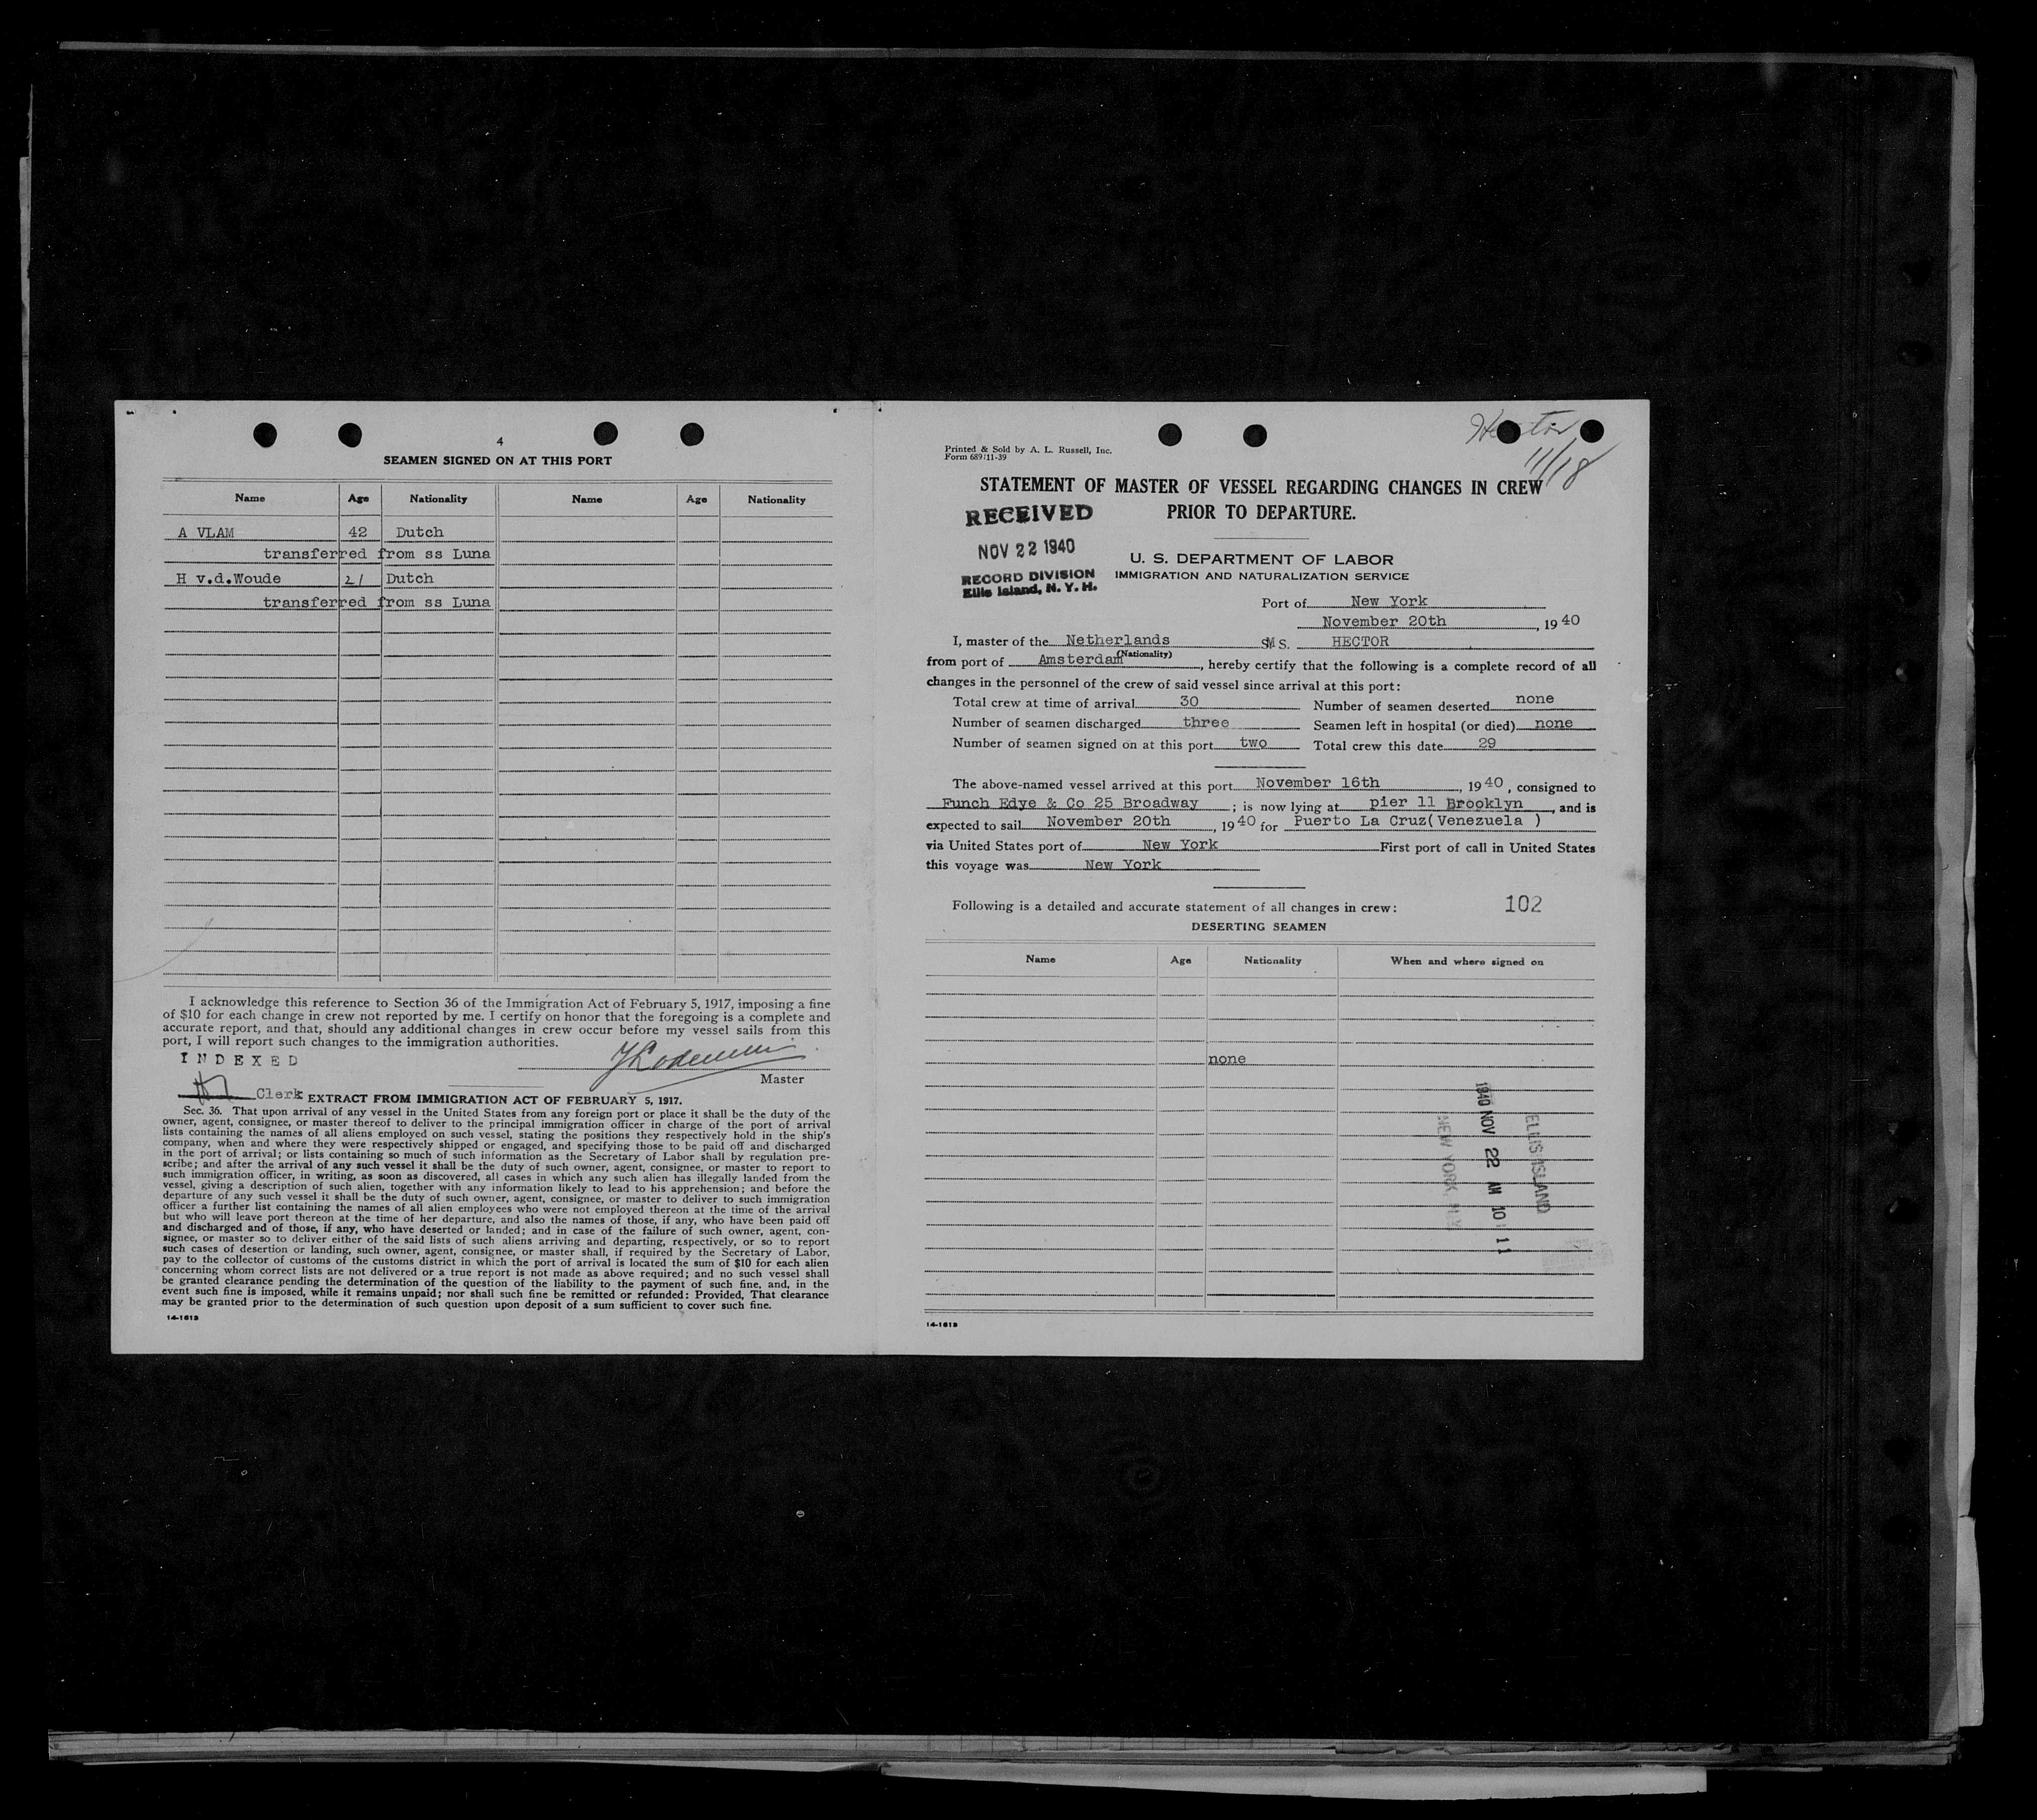 4
SEAMEN SIGNED ON AT THIS PORT
Name Age Nationality Name Age Nationality
A VLAM 42 Dutch
transferred from ss Luna
H v.d.Woude 21 Dutch
transferred from ss Luna
I acknowledge this reference to Section 36 of the Immigration Act of February 5, 1917, imposing a fine
of $10 for each change in crew not reported by me. I certify on honor that the foregoing is a complete and
accurate report, and that, should any additional changes in crew occur before my vessel sails from this
port, I will report such changes to the immigration authorities.
INDEXED
Master
Clerk
EXTRACT FROM IMMIGRATION ACT OF FEBRUARY 5, 1917.
Sec. 36. That upon arrival of any vessel in the United States from any foreign port or place it shall be the duty of the
owner, agent, consignee, or master thereof to deliver to the principal immigration officer in charge of the port of arrival
lists containing the names of all aliens employed on such vessel, stating the positions they respectively hold in the ship's
company, when and where they were respectively shipped or engaged, and specifying those to be paid off and discharged
in the port of arrival; or lists containing so much of such information as the Secretary of Labor shall by regulation pre-
scribe; and after the arrival of any such vessel it shall be the duty of such owner, agent, consignee, or master to report to
such immigration officer, in writing, as soon as discovered, all cases in which any such alien has illegally landed from the
vessel, giving a description of such alien, together with any information likely to lead to his apprehension; and before the
departure of any such vessel it shall be the duty of such owner, agent, consignee, or master to deliver to such immigration
officer a further list containing the names of all alien employees who were not employed thereon at the time of the arrival
but who will leave port thereon at the time of her departure, and also the names of those, if any, who have been paid off
and discharged and of those, if any, who have deserted or landed; and in case of the failure of such owner, agent, con-
signee, or master so to deliver either of the said lists of such aliens arriving and departing, respectively, or so to report
such cases of desertion or landing, such owner, agent, consignee, or master shall, if required by the Secretary of Labor,
pay to the collector of customs of the customs district in which the port of arrival is located the sum of $10 for each alien
concerning whom correct lists are not delivered or a true report is not made as above required; and no such vessel shall
be granted clearance pending the determination of the question of the liability to the payment of such fine, and, in the
event such fine is imposed, while it remains unpaid; nor shall such fine be remitted or refunded: Provided, That clearance
may be granted prior to the determination of such question upon deposit of a sum sufficient to cover such fine.
14-1613
Hector
11/18
Printed & Sold by A. L. Russell, Inc.
Form 689 11-39
STATEMENT OF MASTER OF VESSEL REGARDING CHANGES IN CREW
PRIOR TO DEPARTURE.
RECEIVED
NOV 22 1940
RECORD DIVISION
Ellis Island, N. Y. H.
U. S. DEPARTMENT OF LABOR
IMMIGRATION AND NATURALIZATION SERVICE
Port of New York
November 20th, 1940
I, master of the Netherlands M S. HECTOR
(Nationality)
from port of Amsterdam, hereby certify that the following is a complete record of all
changes in the personnel of the crew of said vessel since arrival at this port:
Total crew at time of arrival 30 Number of seamen deserted none
Number of seamen discharged three Seamen left in hospital (or died) none
Number of seamen signed on at this port two Total crew this date 29
The above-named vessel arrived at this port November 16th, 1940, consigned to
Funch Edye & Co 25 Broadway; is now lying at pier 11 Brooklyn, and is
expected to sail November 20th, 1940 for Puerto La Cruz(Venezuela )
via United States port of New York First port of call in United States
this voyage was New York
Following is a detailed and accurate statement of all changes in crew: 102
DESERTING SEAMEN
Name Age Nationality When and where signed on
none
ELLIS ISLAND
1940 NOV 22 AM 10 11
NEW YORK, N.Y.
14-1613